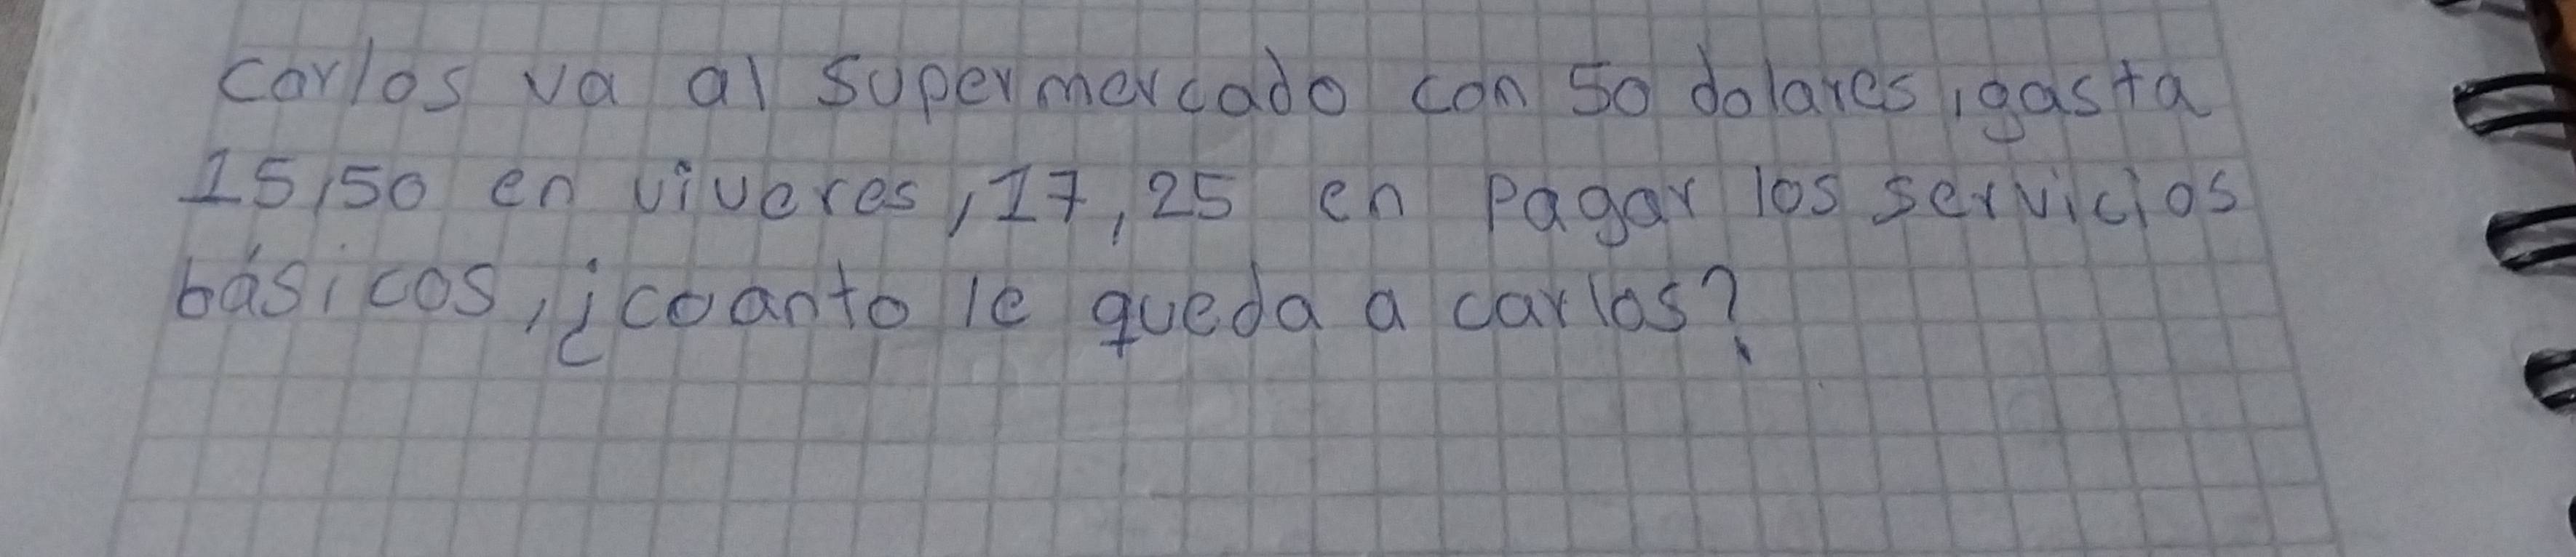 Carlos va al supermercado con 50 dolares, gasta
15,50 en viveres, 17,25 en pagar los servicios
básicos, ¿coanto le queda a carlos?